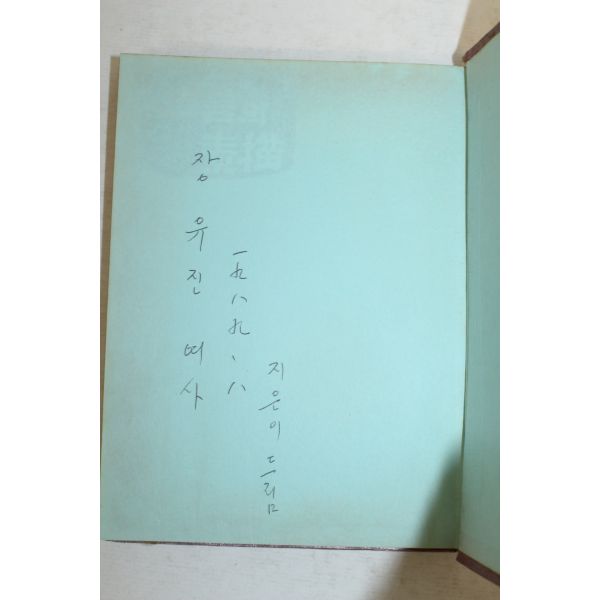 장유진 여사
一九八九、八
지은이 드림